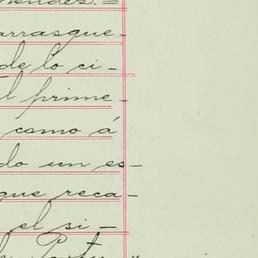 arrasque-
de lo ci-
l prime-
como á
do un es-
que reca-
el si-